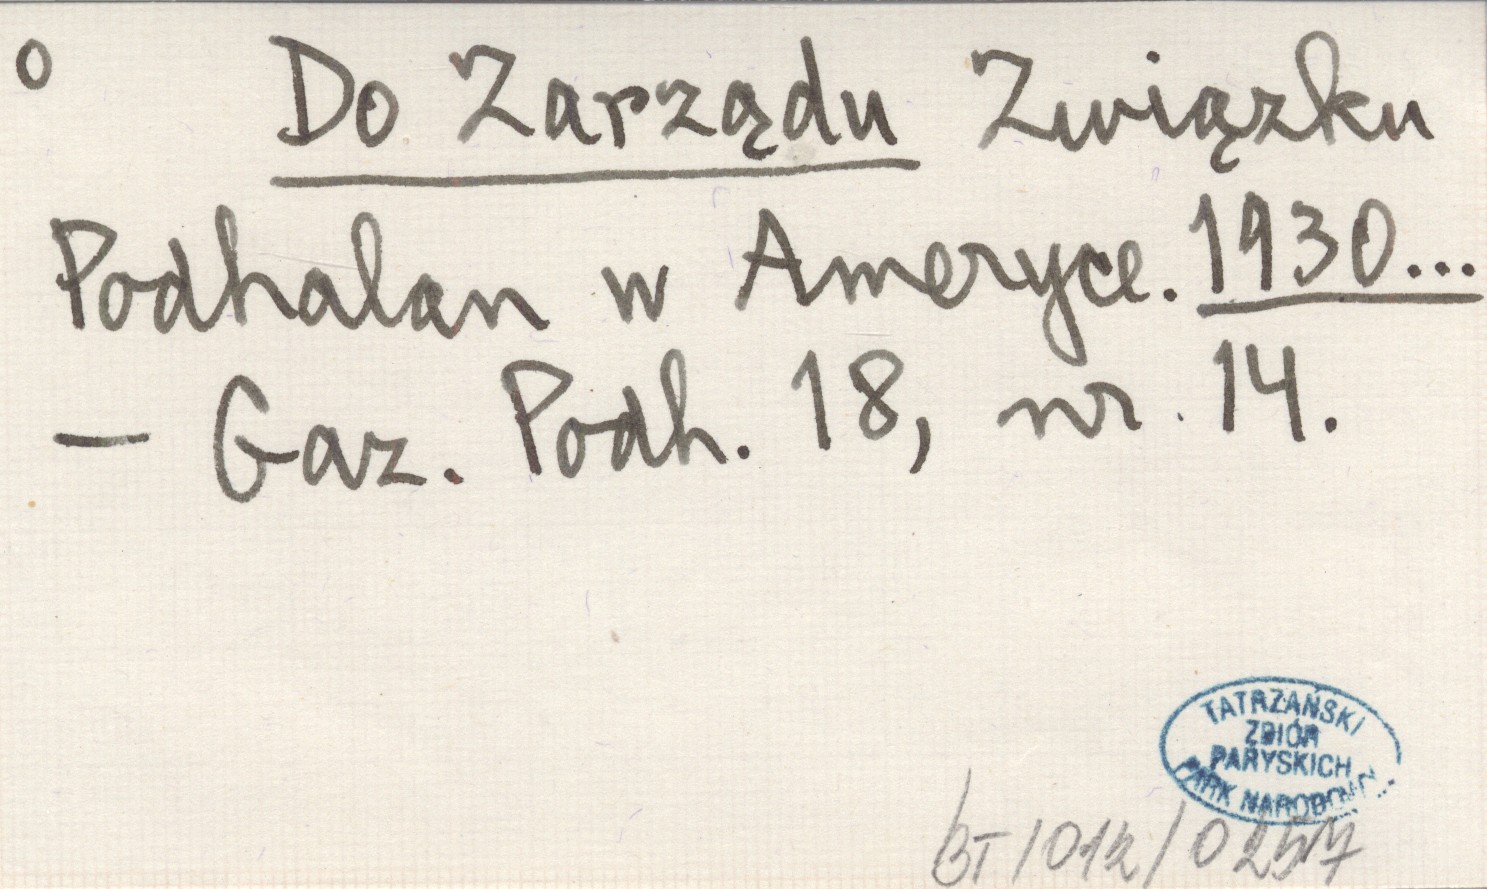 o Do Zarządu Związku
Podhalan w Ameryce. 1930...
— Gaz. Podh. 18, nr. 14.
TATRZAŃSKI
ZBIÓR
PARYSKICH
PARK NARODOWY
BT/012/0257